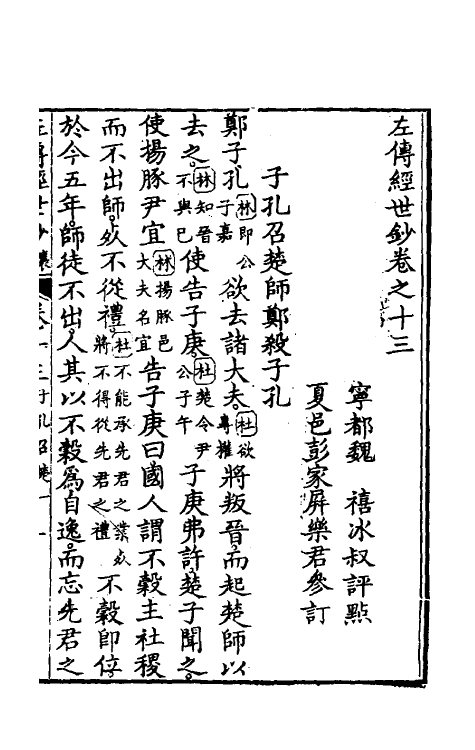 左傳經世鈔卷之十三
寧都魏　禧冰叔評點
夏邑彭家屏樂君參訂
子孔召楚師鄭殺子孔
鄭子孔林即公子嘉欲去諸大夫杜欲專權將叛晉而起楚師以
去之林知晉不與己使告子庚杜楚令尹公子午子庚弗許楚子聞之
使揚豚尹宜林揚豚邑大夫名宜告子庚曰國人謂不穀主社稷
而不出師死不從禮杜不能承先君之業死將不得從先君之禮不穀即位
於今五年師徒不出人其以不穀爲自逸而忘先君之
左傳經世鈔　卷十三子孔召楚　一